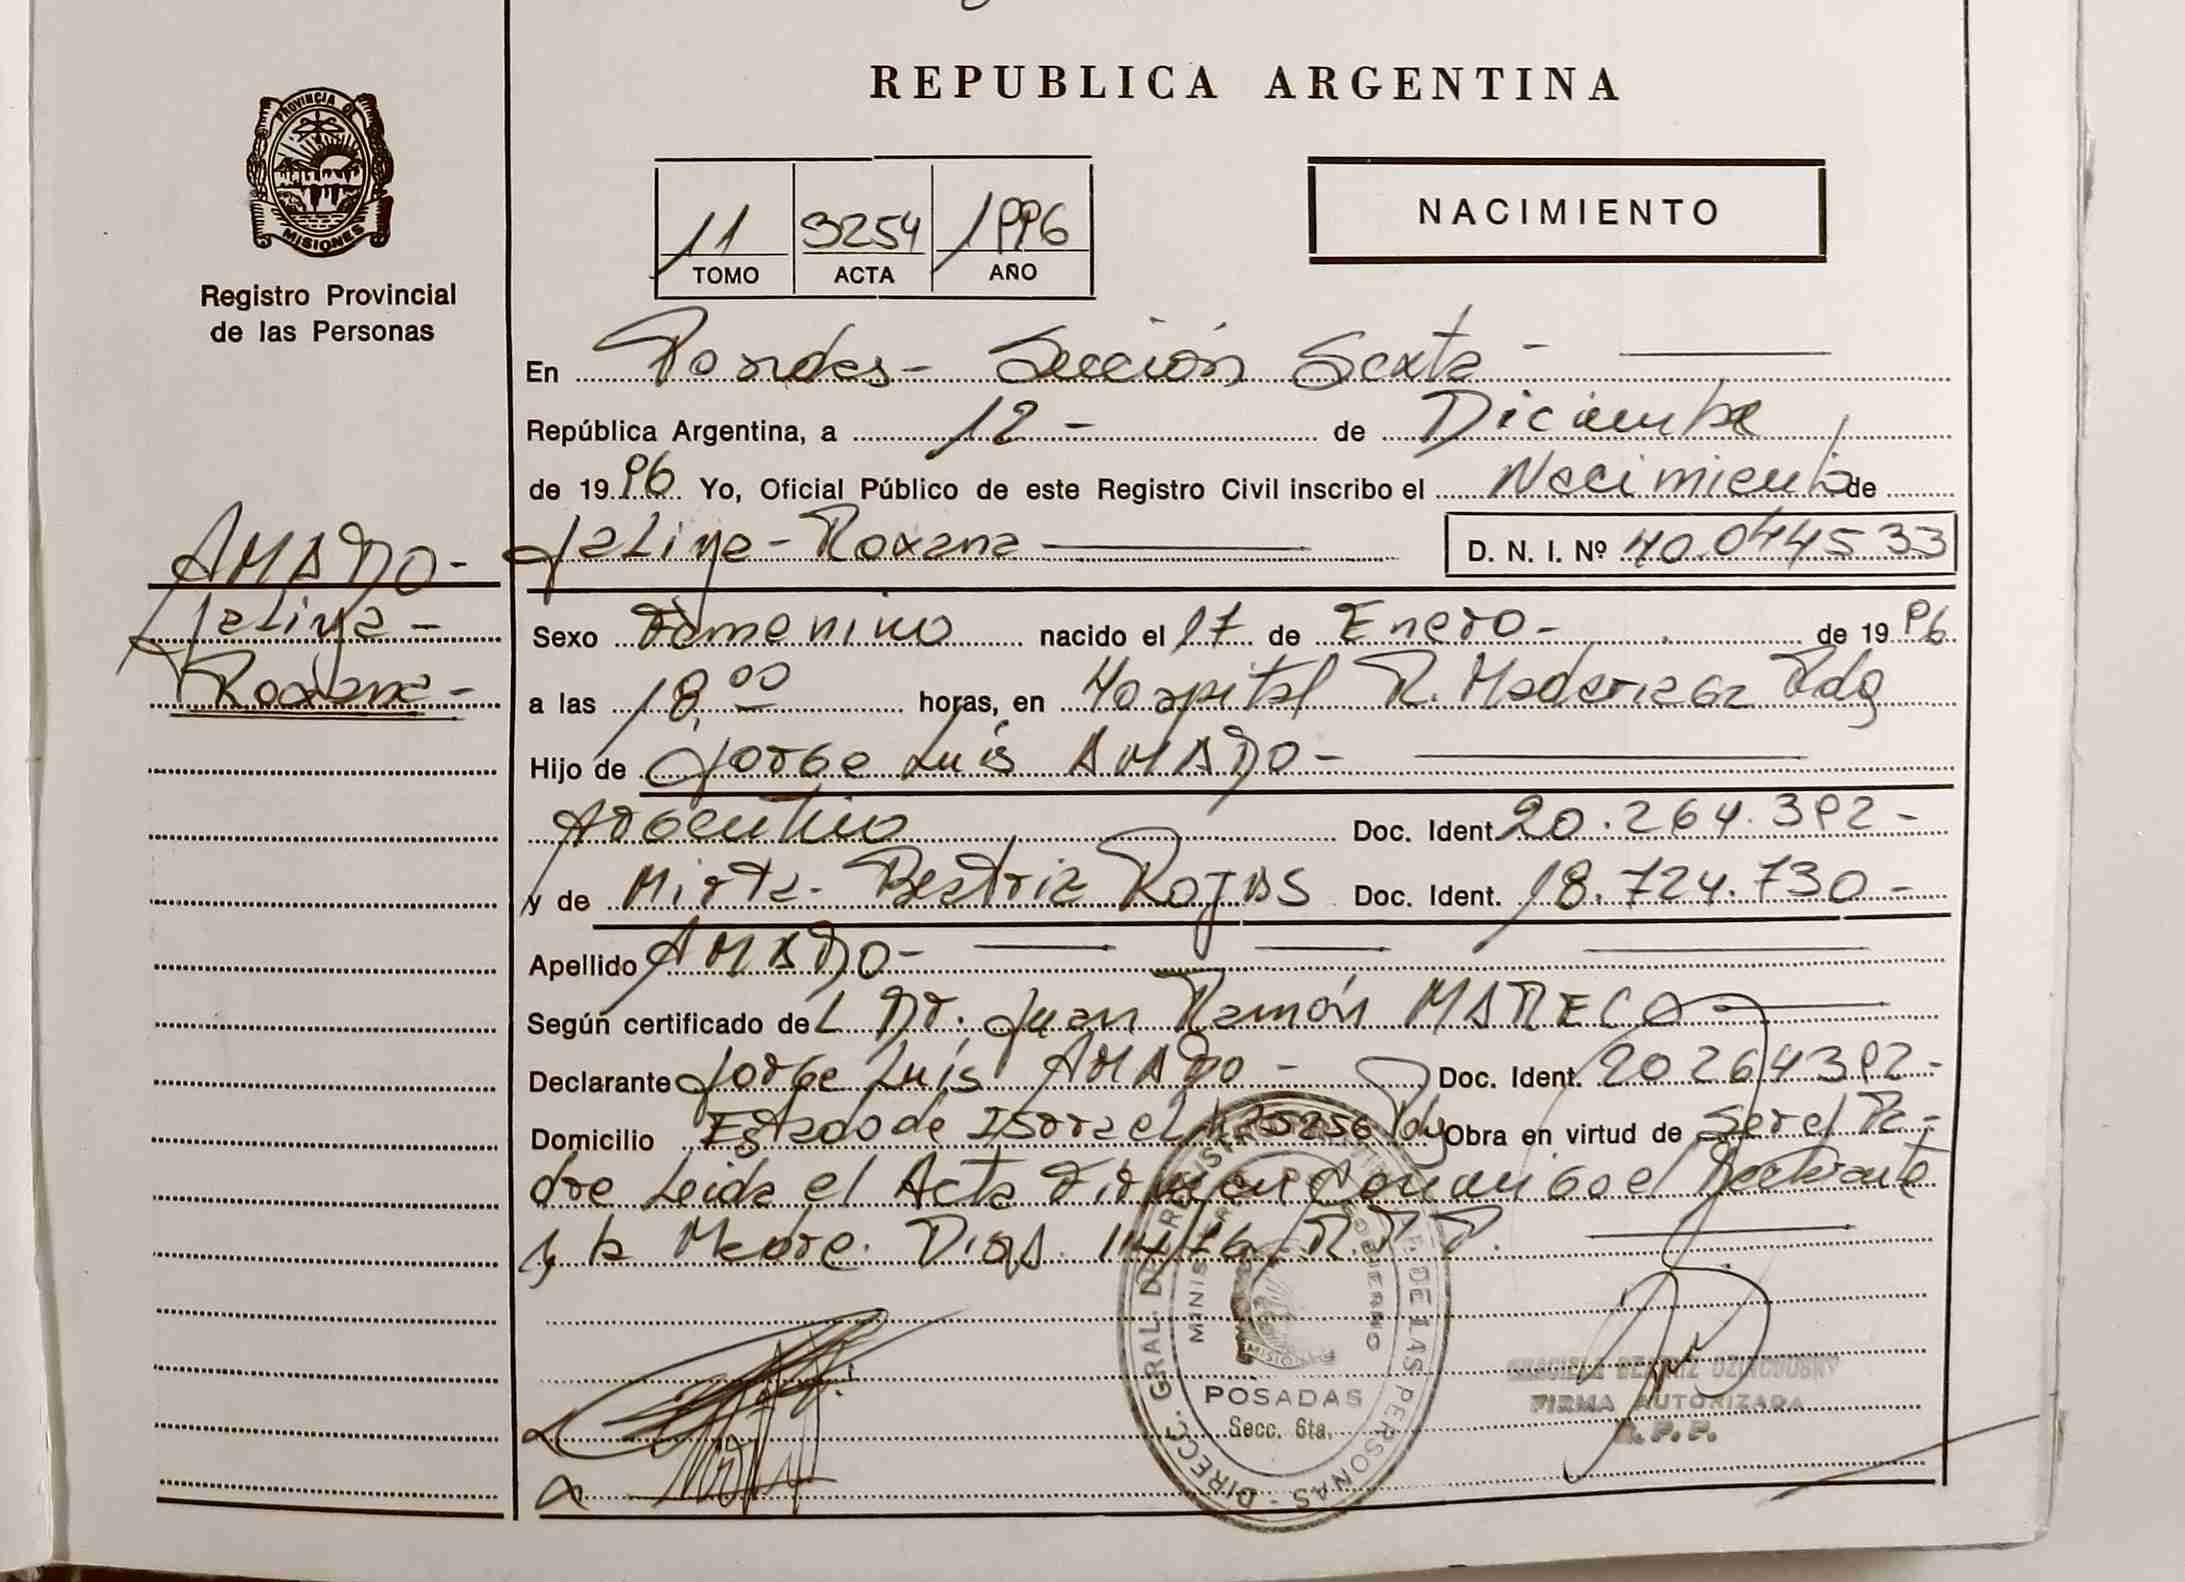 REPUBLICA ARGENTINA
PROVINCIA DE
MISIONES
Registro Provincial
de las Personas
11 3254 1996
TOMO ACTA AÑO
NACIMIENTO
En Posadas - Sección Sexta -
República Argentina, a 12 - de Diciembre
de 1996 Yo, Oficial Público de este Registro Civil inscribo el Nacimiento de
AMADO - Jaliye - Roxana D. N. I. Nº 40.044533
Jaliye -
Roxana -
Sexo Femenino nacido el 17 de Enero - de 1996
a las 18,00 horas, en Hospital R. Madariaga Pdas
Hijo de Jorge Luis AMADO -
Argentino Doc. Ident. 20.264.392 -
y de Mirta - Beatriz ROJAS Doc. Ident. 18.724.730 -
Apellido AMADO -
Según certificado del Dr. Juan Ramón MARECO
Declarante Jorge Luis AMADO - Doc. Ident. 20264392 -
Domicilio Estado de Israel Obra en virtud de Ser el Pa -
dre Leida el Acta Firman Conmigo el Declarante
y la Madre. R.P.P.
DIRECC. GRAL. DE REGISTRO P. DE LAS PERSONAS
MINIS GOBIERNO
MISIONES
POSADAS
Secc. 6ta.
GRACIELA BEATRIZ
FIRMA AUTORIZADA
R.P.P.